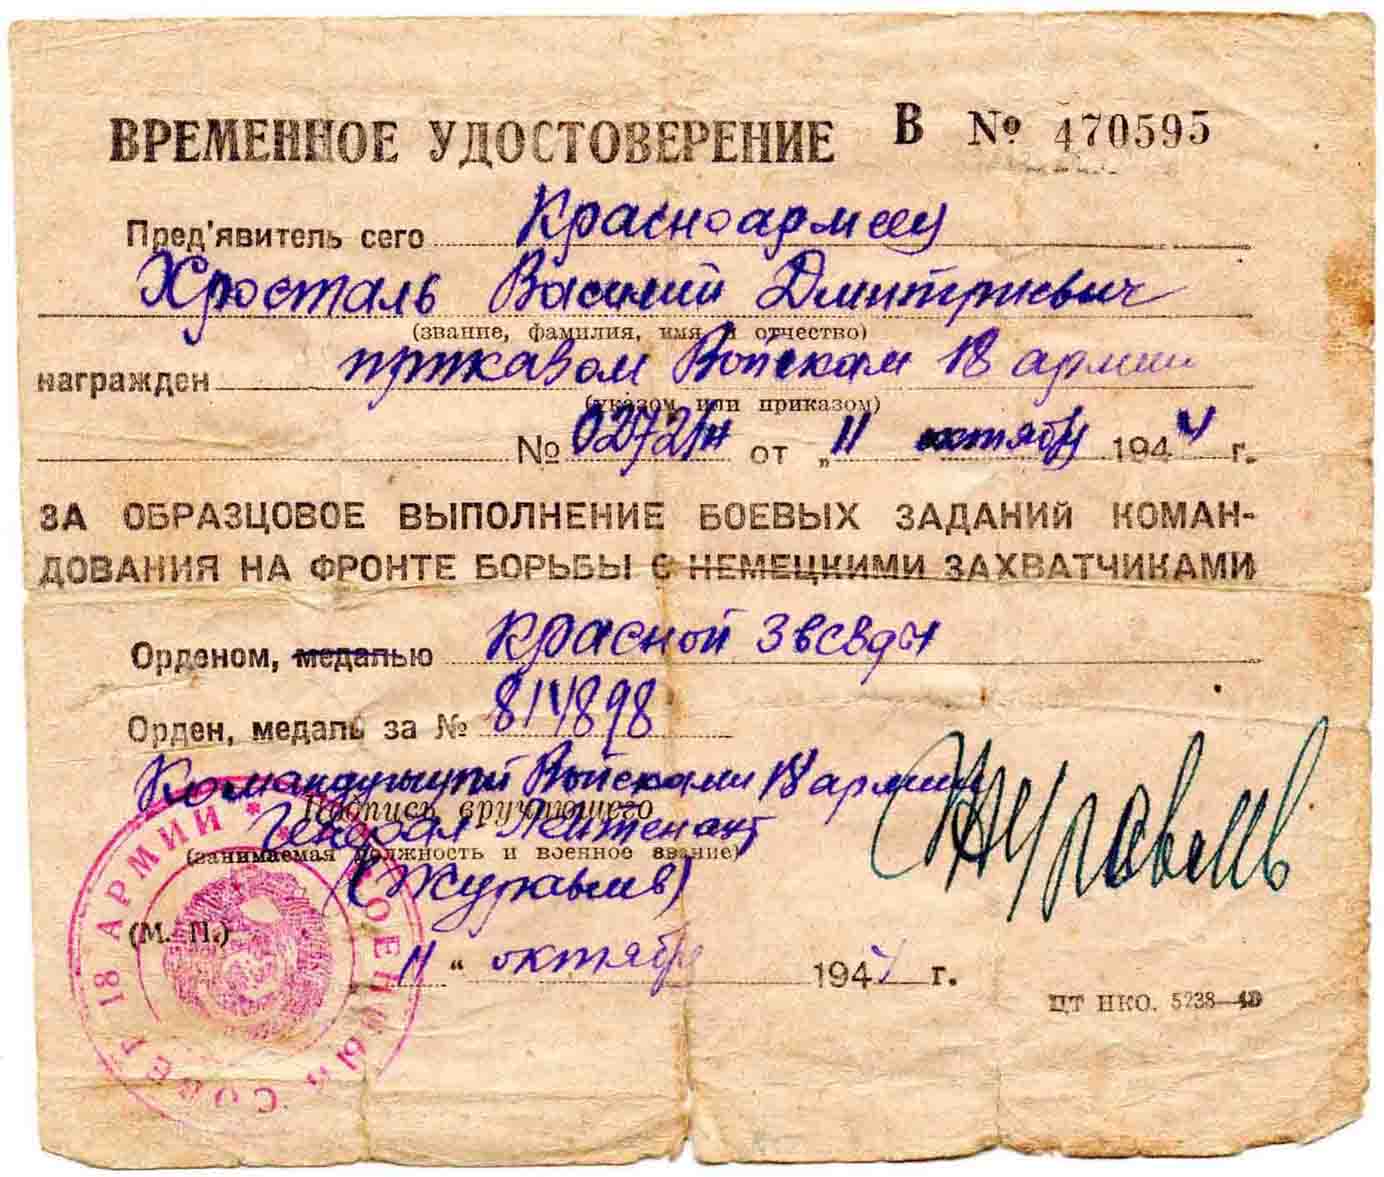 ВРЕМЕННОЕ УДОСТОВЕРЕНИЕ В № 470595
Пред'явитель сего Красноармеец
Хросталь Василий Дмитриевич
(звание, фамилия, имя и отчество)
награжден приказом Войскам 18 армии
(указом или приказом)
№ 0272/н от „11 октября 1944 г.
ЗА ОБРАЗЦОВОЕ ВЫПОЛНЕНИЕ БОЕВЫХ ЗАДАНИЙ КОМАН-
ДОВАНИЯ НА ФРОНТЕ БОРЬБЫ С НЕМЕЦКИМИ ЗАХВАТЧИКАМИ
Орденом, медалью Красной Звезды
Орден, медаль за № 814898
Командующий Войсками 18 армии
Подпись вручающего
Генерал Лейтенант
(занимаемая должность и военное звание)
(Журавлев) Журавлев
(М. П.)
11 “ октября 1944 г.
ЦТ НКО. 5238—42
ВОЕННЫЙ СОВЕТ 18 АРМИИ *